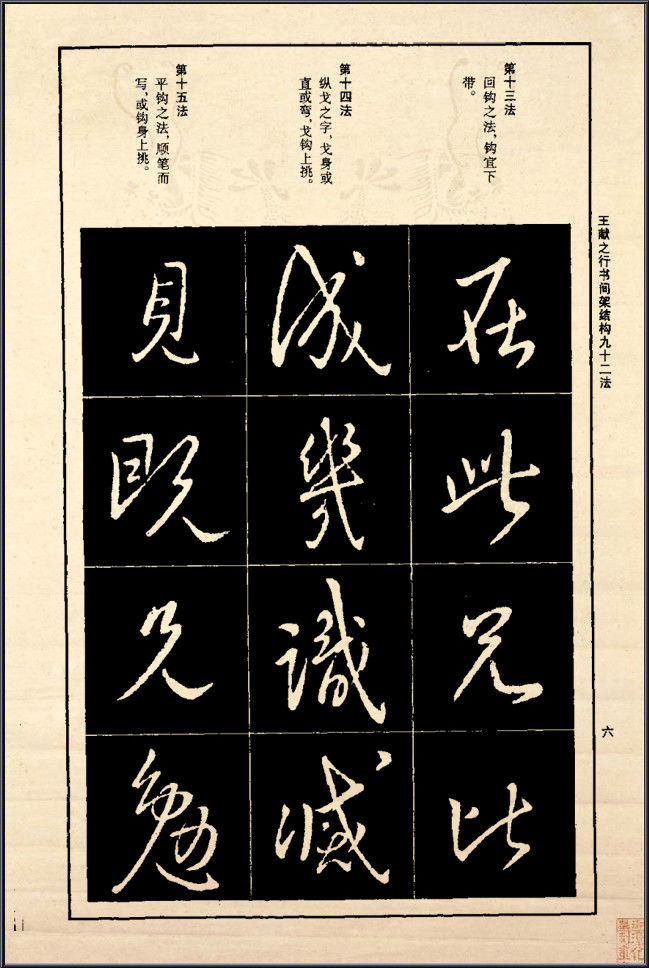 王献之行书间架结构九十二法
六
第十三法
回钩之法，钩宜下
带。
此
兄
比
第十四法
纵戈之字，戈身或
直或弯，戈钩上挑。
成
幾
識
第十五法
平钩之法，顺笔而
写，或钩身上挑。
見
既
勉